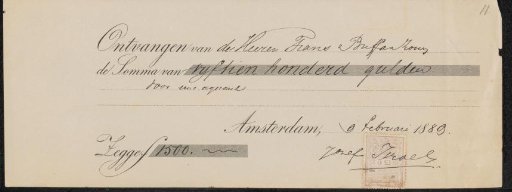 11
Ontvangen van de Heeren Frans Buffa & Zonen
de Somma van vyftien honderd gulden
voor une aquarel
Amsterdam, 9 Februari 1883.
Zegge ƒ 1500.
Jozef Israels